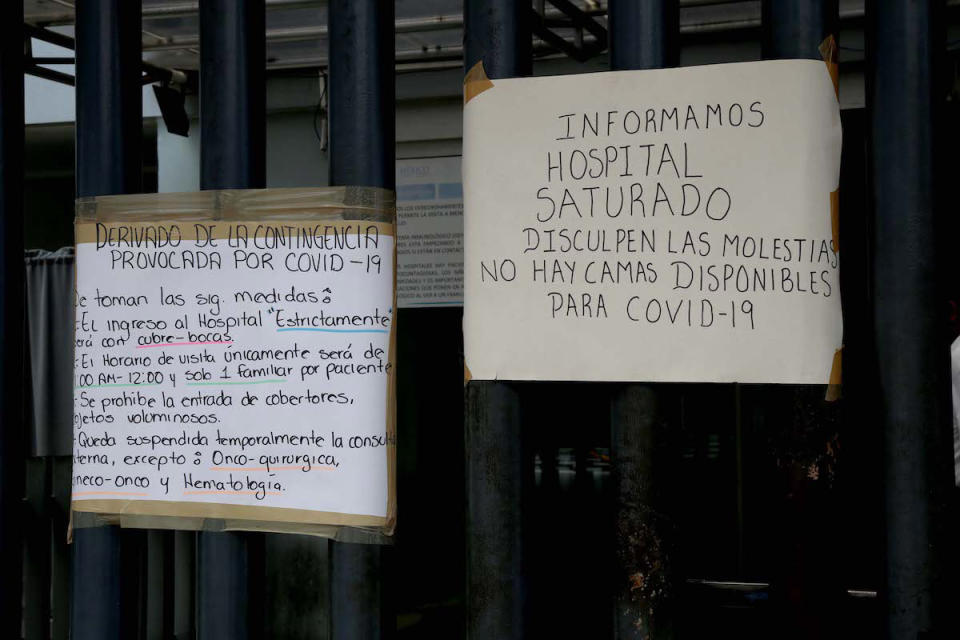 DERIVADO DE LA CONTINGENCIA
PROVOCADA POR COVID-19
Se toman las sig. medidas:
-EL ingreso al Hospital "Estrictamente"
será con cubre-bocas.
-El Horario de visita únicamente será de
:00 AM-12:00 y solo 1 familiar por paciente
-Se prohibe la entrada de cobertores,
objetos voluminosos.
-Queda suspendida temporalmente la consulta
terna, excepto: Onco-quirurgica,
ineco-onco y Hematología.
INFORMAMOS
HOSPITAL
SATURADO
DISCULPEN LAS MOLESTIAS
NO HAY CAMAS DISPONIBLES
PARA COVID-19